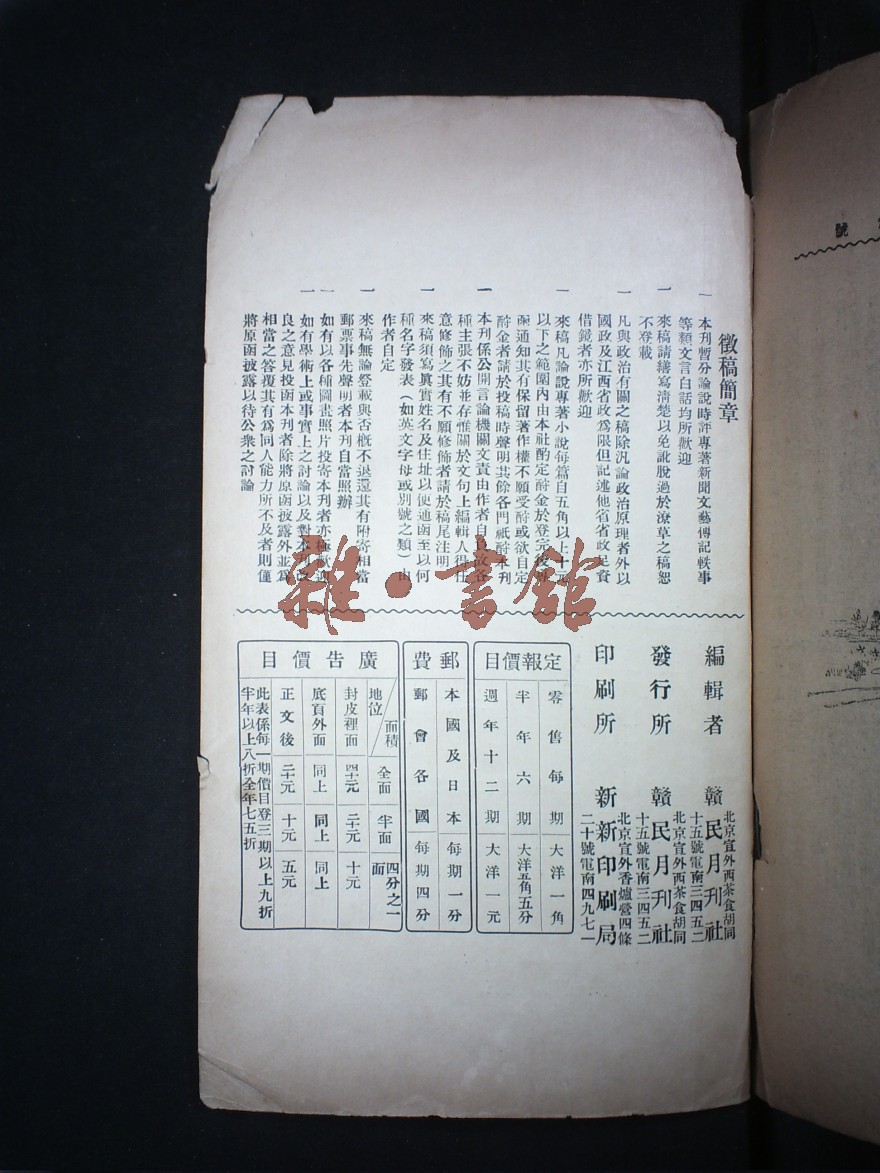 徵稿簡章
一 本刊暫分論說時評專著新聞文藝傳記軼事
等類文言白話均所歡迎
一 來稿請繕寫清楚以免訛脫過於潦草之稿恕
不登載
一 凡與政治有關之稿除汎論政治原理者外以
國政及江西省政爲限但記述他省省政足資
借鏡者亦所歡迎
一 來稿凡論說專著小說每篇自五角以上十元
以下之範圍內由本社酌定酧金於登完後
函通知其有保留著作權不願受酧或欲自定
酧金者請於投稿時聲明其餘各門祇酧本刊
一 本刊係公開言論機關文責由作者自負故各
種主張不妨並存惟關於文句上編輯人得任
意修飾之其有不願修飾者請於稿尾注明
一 來稿須寫眞實姓名及住址以便通函至以何
種名字發表(如英文字母或別號之類)由
作者自定
一 來稿無論登載與否槪不退還其有附寄相當
郵票事先聲明者本刊自當照辦
一 如有以各種圖畫照片投寄本刊者亦極歡迎
一 如有學術上或事實上之討論以及對本刊改
良之意見投函本刊者除將原函披露外並爲
相當之答覆其有爲同人能力所不及者則僅
將原函披露以待公衆之討論
編輯者 贛民月刊社
北京宣外西茶食胡同
十五號電南三四五二
發行所 贛民月刊社
北京宣外西茶食胡同
十五號電南三四五二
印刷所 新新印刷局
北京宣外香爐營四條
二十號電南四九七一
定報價目
零售每期 大洋一角
半年六期 大洋五角五分
週年十二期 大洋一元
郵費
本國及日本 每期一分
郵會各國 每期四分
廣告價目
地位/面積 全面 半面 四分之一面
封皮裡面 四十元 二十元 十元
底頁外面 同上 同上 同上
正文後 二十元 十元 五元
此表係每一期價目登三期以上九折
半年以上八折全年七五折
雜·書館
號